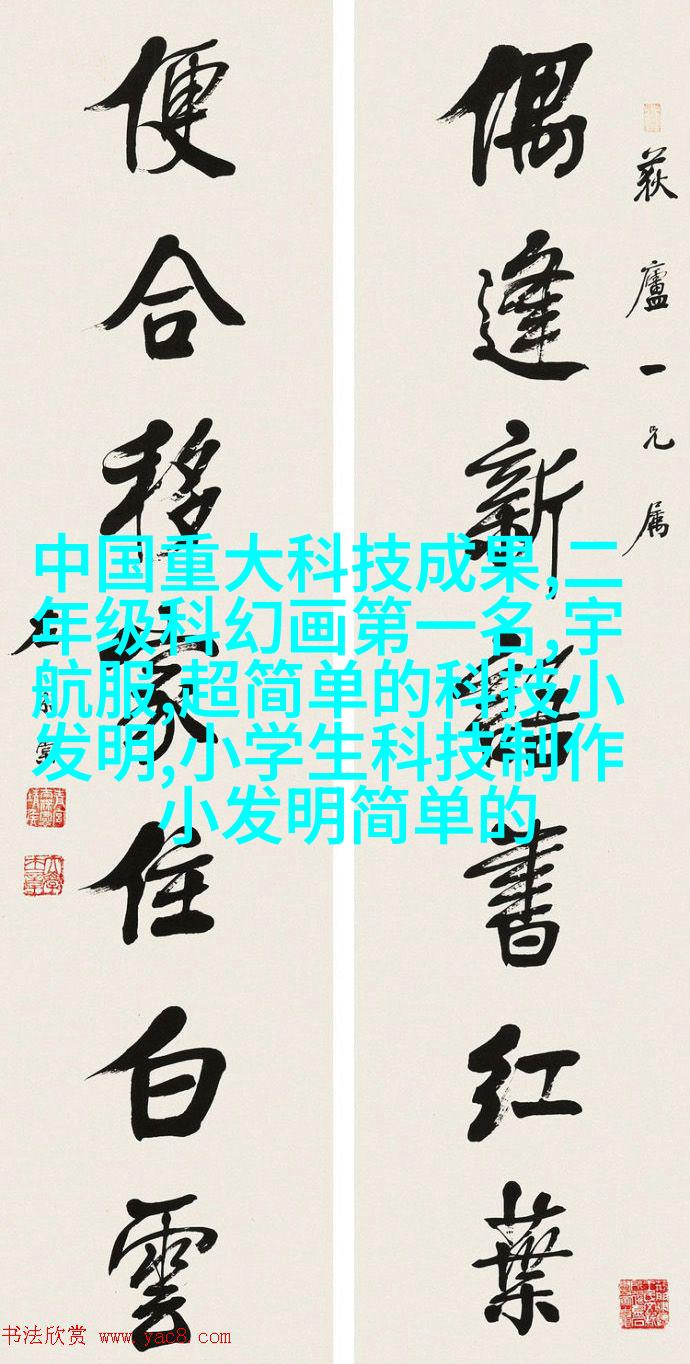 荻廬一兄属
偶逢新語書紅葉
便合移家住白雲
中国重大科技成果,二
年级科幻画第一名,宇
航服,超简单的科技小
发明,小学生科技制作
小发明简单的
书法欣赏 www.yac8.com